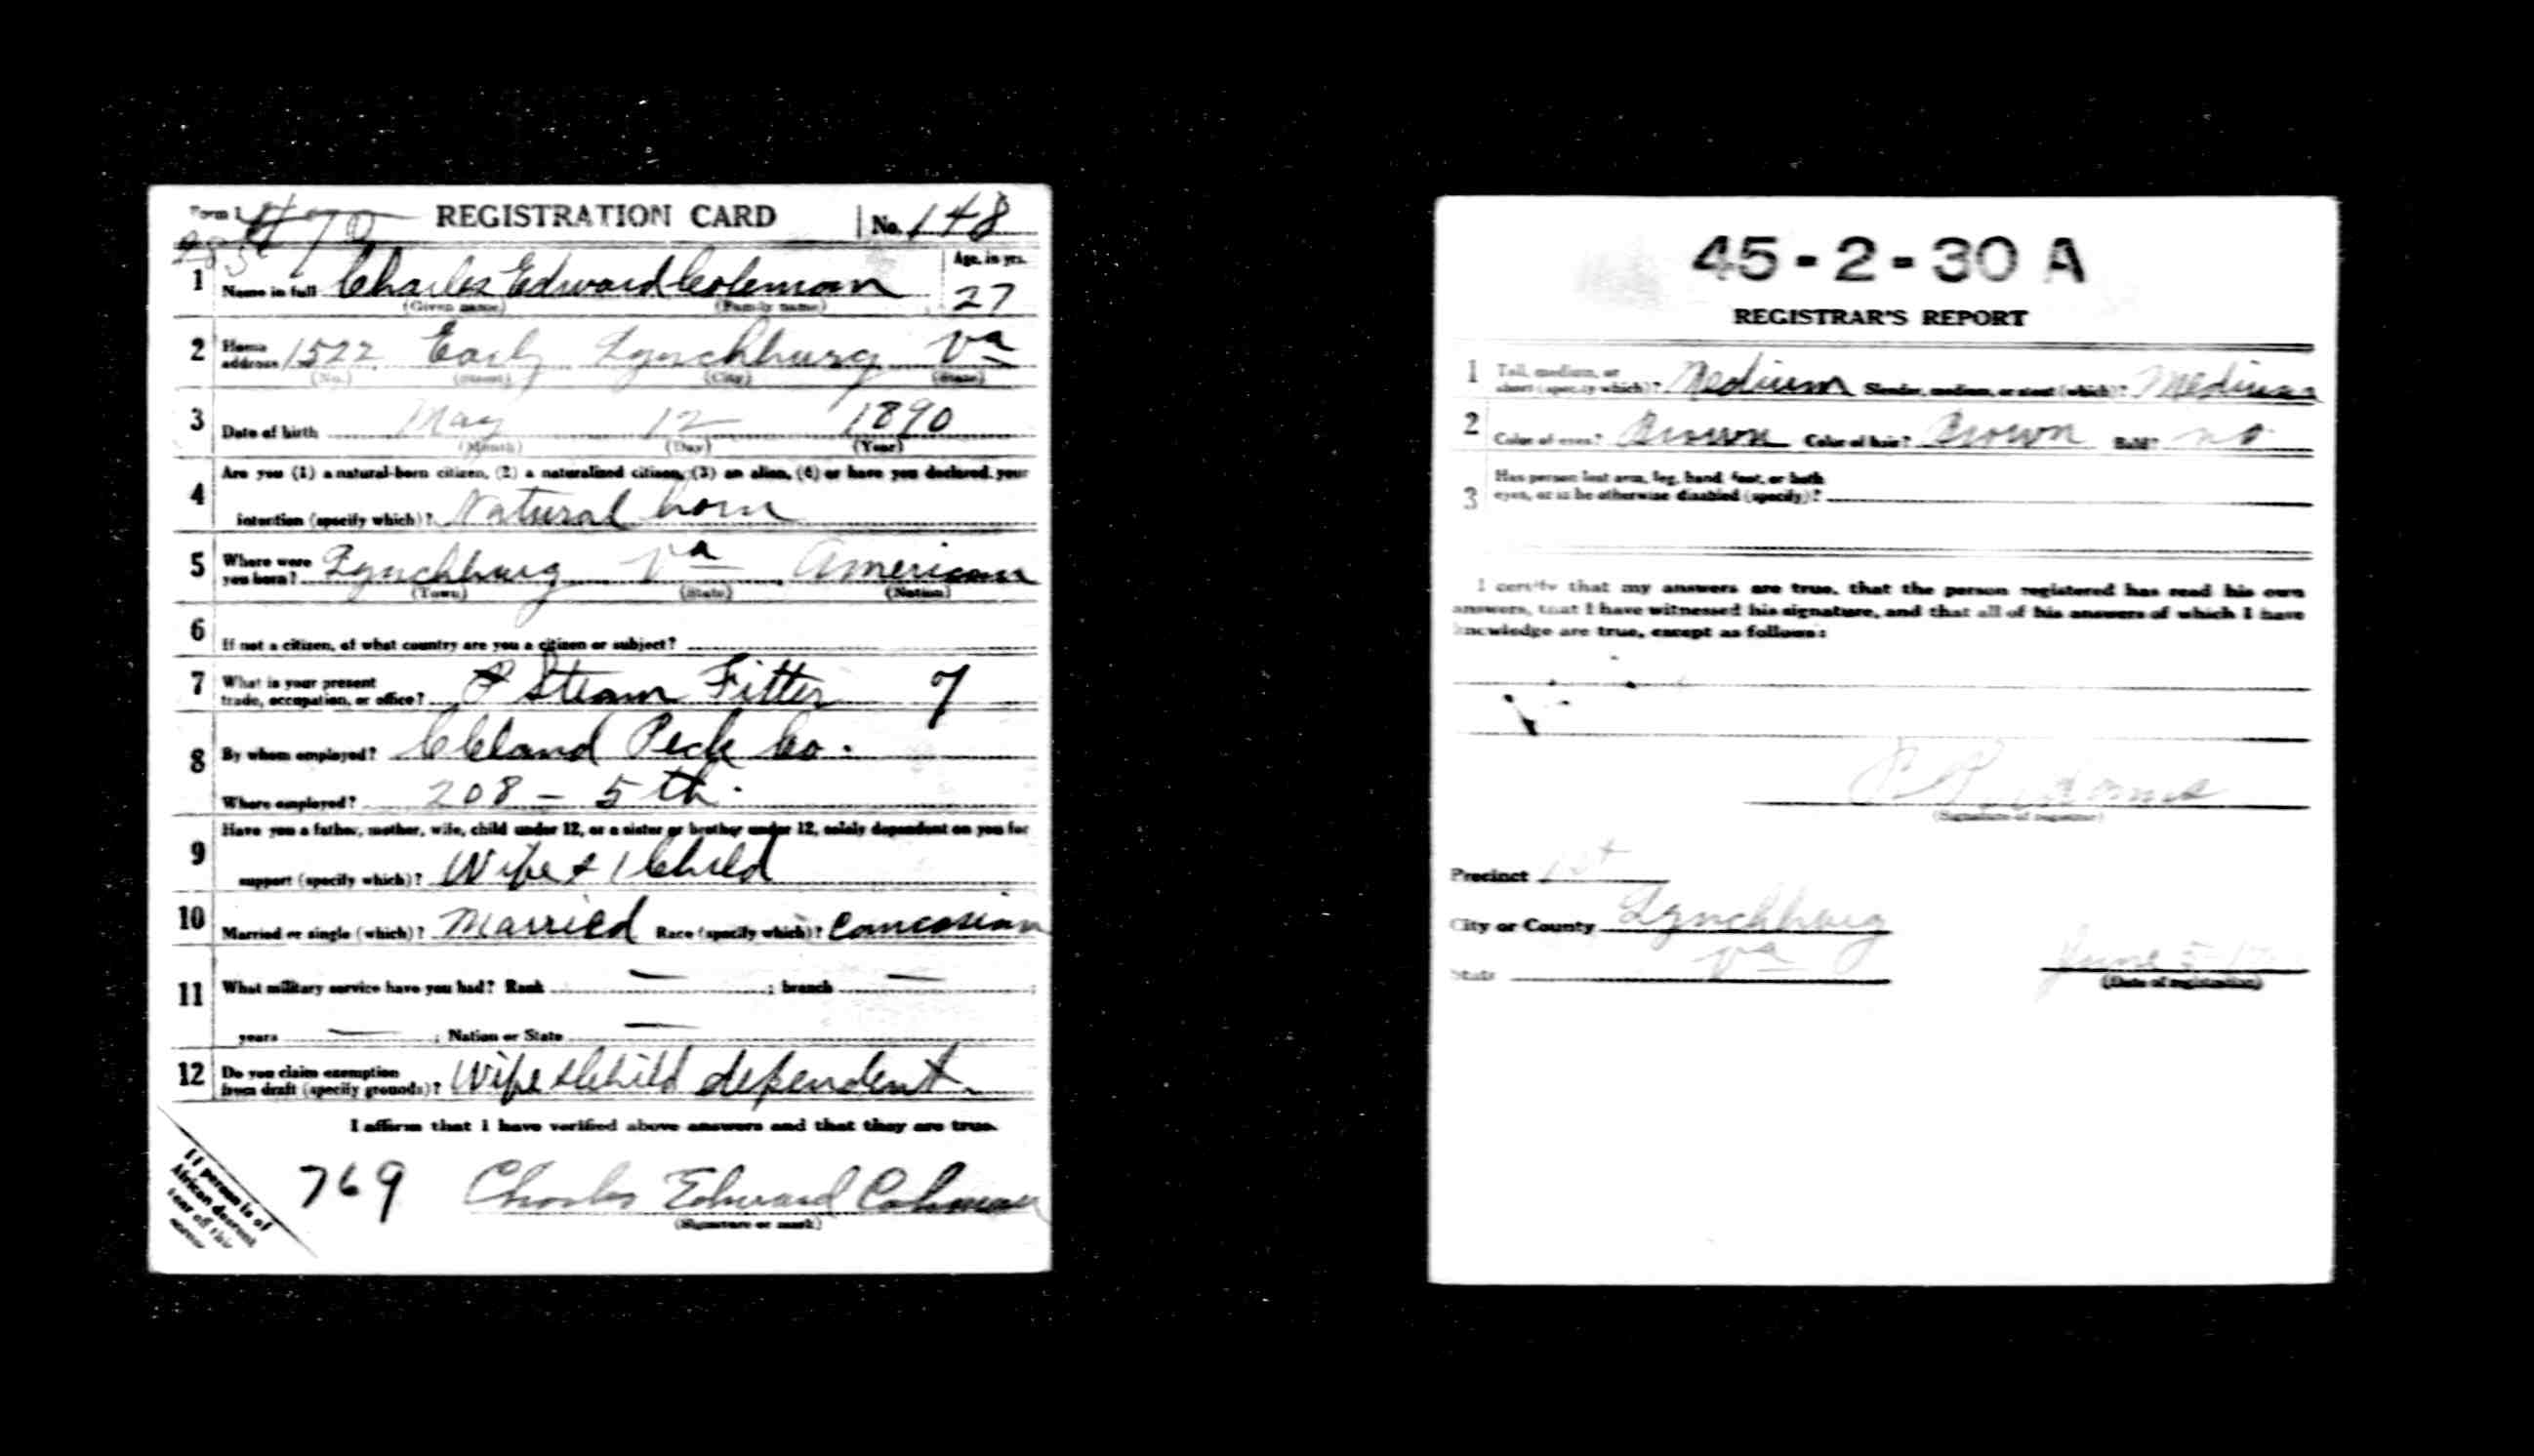 Form 1 470 REGISTRATION CARD No. 148
1 Name in full Charles Edward Coleman Age, in yrs. 27
(Given name) (Family name)
2 Home address 1522 Early Lynchburg Va
(No.) (Street) (City) (State)
3 Date of birth May 12 1890
(Month) (Day) (Year)
4 Are you (1) a natural-born citizen, (2) a naturalized citizen, (3) an alien, (4) or have you declared your
intention (specify which)? Natural born
5 Where were you born? Lynchburg Va American
(Town) (State) (Nation)
6 If not a citizen, of what country are you a citizen or subject?
7 What is your present
trade, occupation, or office? Steam Fitter 7
8 By whom employed? Peck Co.
Where employed? 208 - 5th.
9 Have you a father, mother, wife, child under 12, or a sister or brother under 12, solely dependent on you for
support (specify which)? Wife & 1 Child
10 Married or single (which)? Married Race (specify which)? Caucasian
11 What military service have you had? Rank — ; branch — ;
years — ; Nation or State —
12 Do you claim exemption
from draft (specify grounds)? Wife & Child dependent
I affirm that I have verified above answers and that they are true.
769 Charles Edward Coleman
(Signature or mark)
If person is of
African descent
tear off this
corner
45-2-30 A
REGISTRAR'S REPORT
1 Tall, medium, or
short (specify which)? Medium Slender, medium, or stout (which)? Medium
2 Color of eyes? Brown Color of hair? Brown Bald? no
3 Has person lost arm, leg, hand, foot, or both
eyes, or is he otherwise disabled (specify)?
I certify that my answers are true, that the person registered has read his own
answers, that I have witnessed his signature, and that all of his answers of which I have
knowledge are true, except as follows:
(Signature of registrar)
Precinct 1st
City or County Lynchburg
State Va June 5-17
(Date of registration)